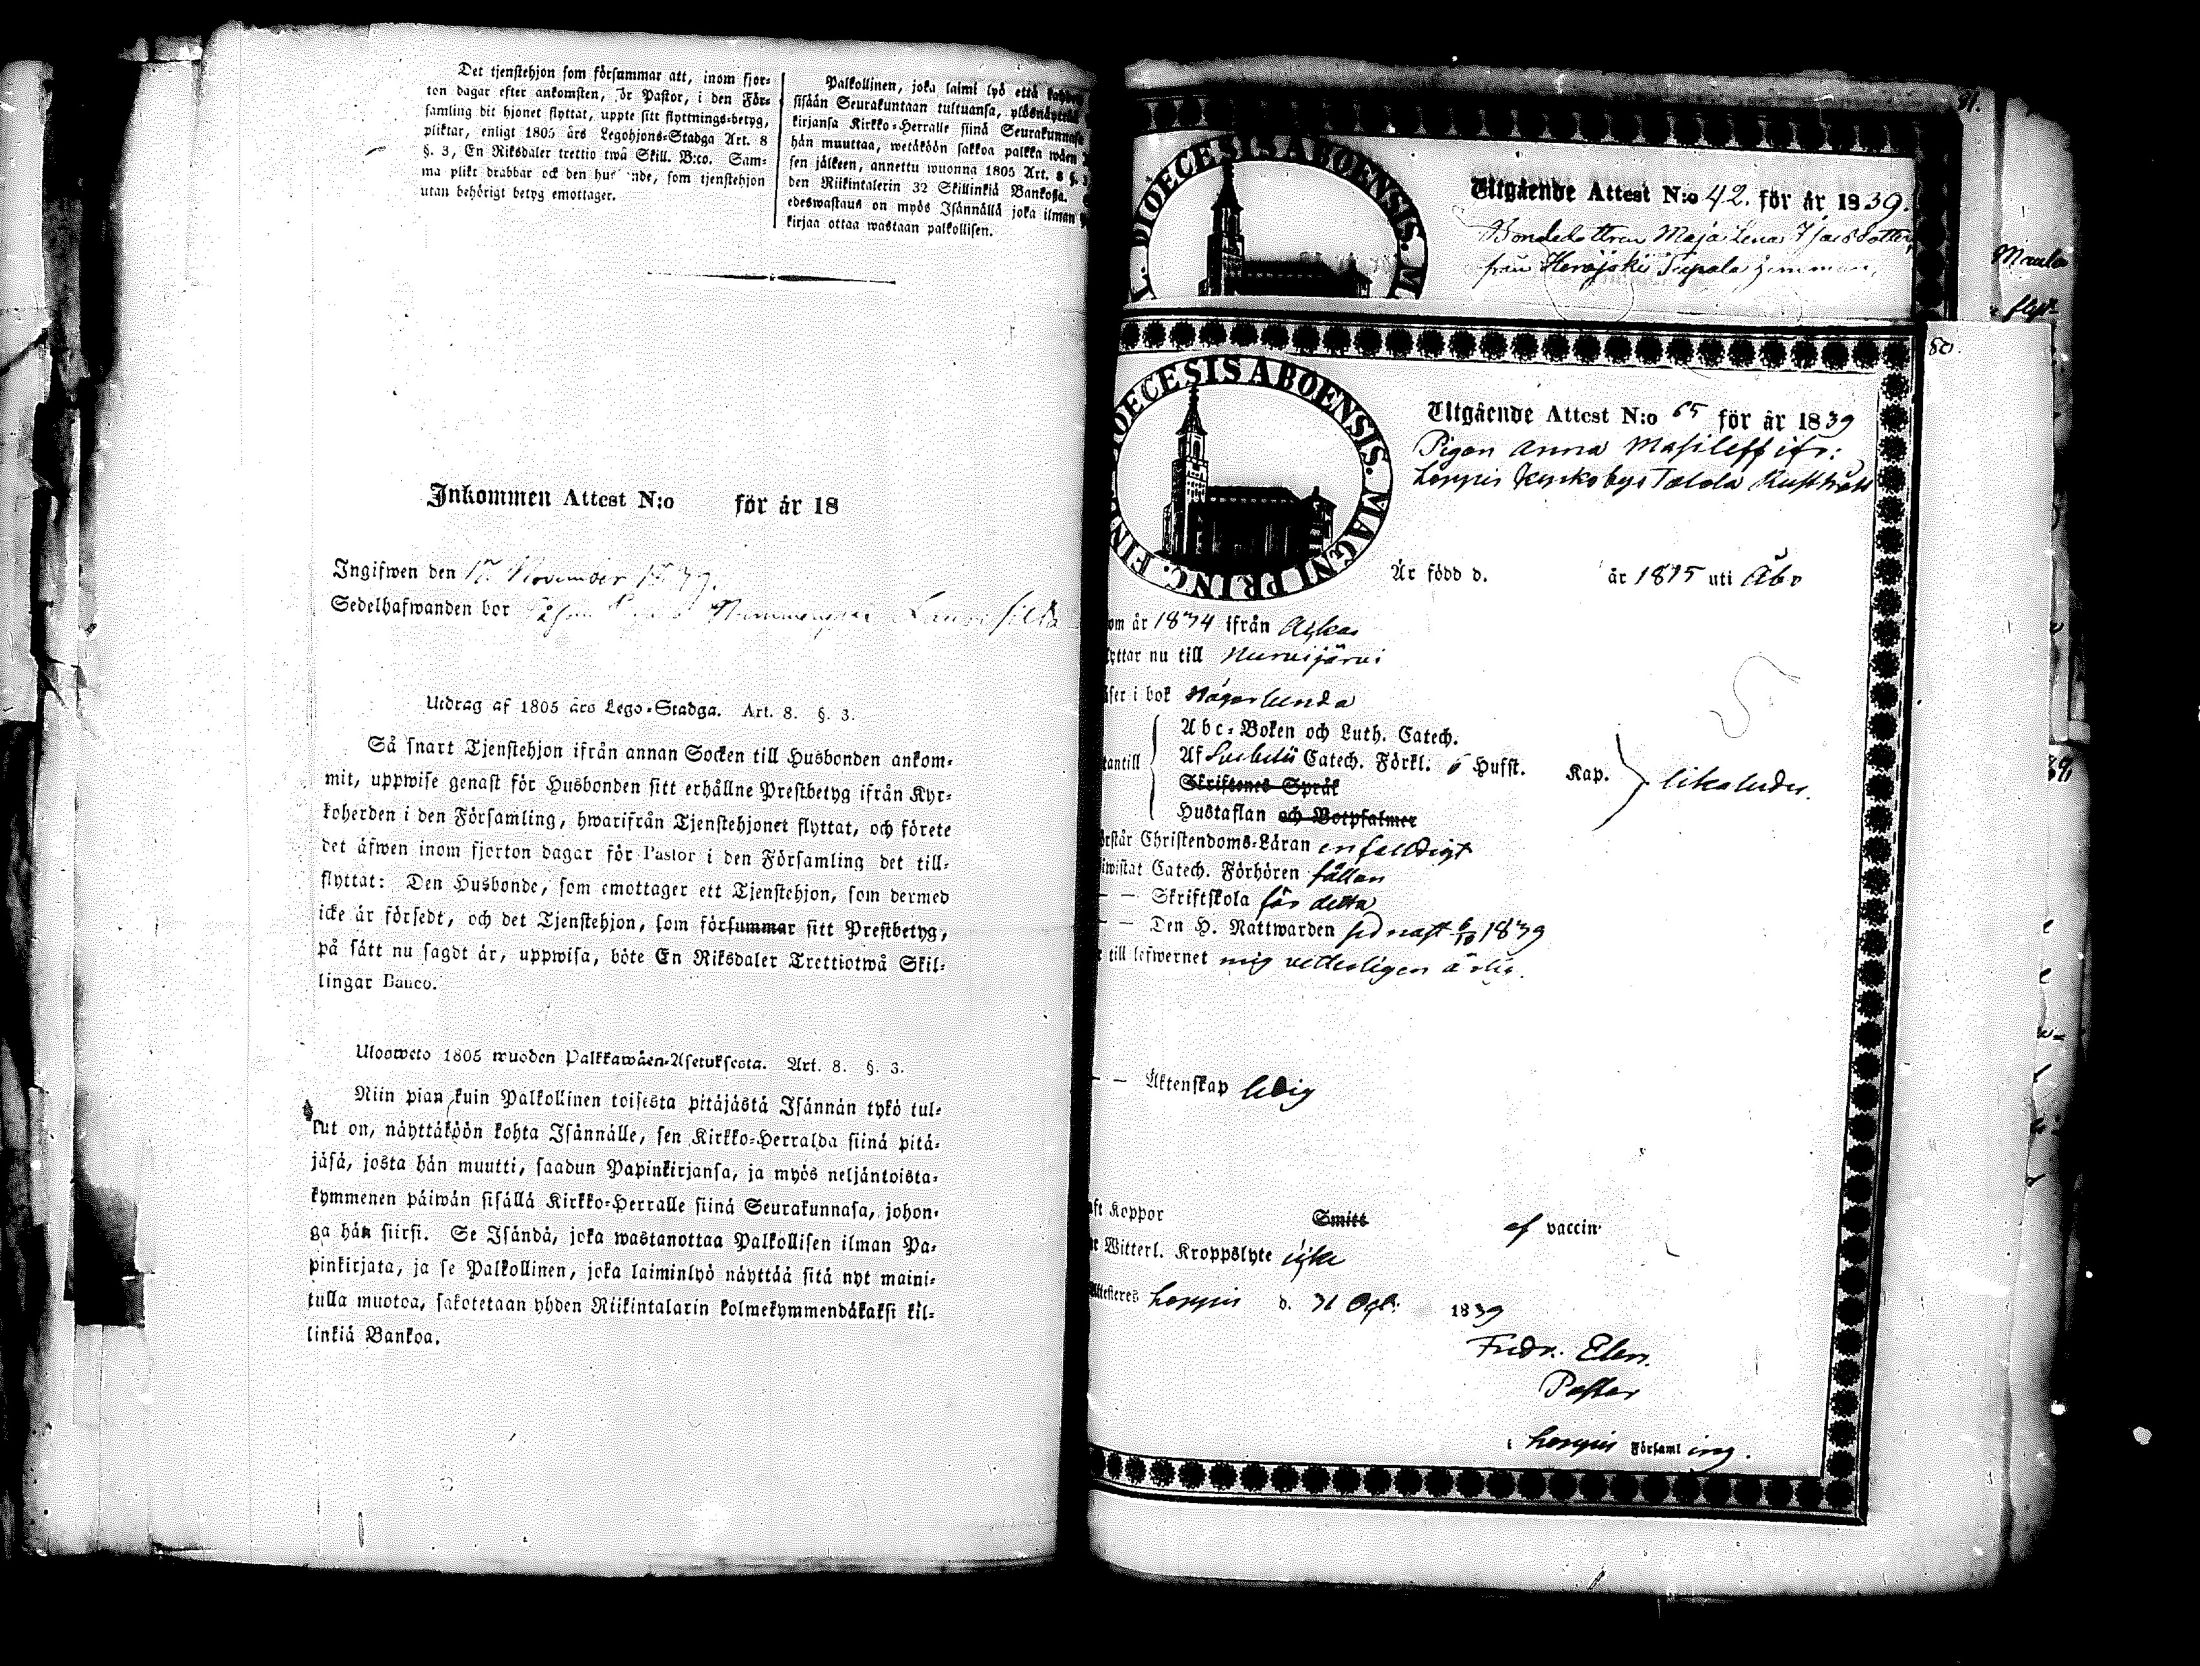 Det tjenstehjon som försummar att, inom fjor-
ton dagar efter ankomsten, för Pastor, i den För-
samling dit hjonet flyttat, uppte sitt flyttnings-betyg,
pliktar, enligt 1805 års Legohjons-Stadga Art. 8
§. 3, En Riksdaler trettio twå Skill. B:co. Sam-
ma plikt drabbar ock den hus nde, som tjenstehjon
utan behörigt betyg emottager.
Palkollinen, joka laimi lyö että
sisään Seurakuntaan tultuansa, ylösnäyttää
kirjansa Kirkko-Herralle siinä Seurakunnasa
hän muuttaa, wetäköön sakkoa palkka wäen
sen jälkeen, annettu wuonna 1805 Art. 8 §. 3
den Riikintalerin 32 Skillinkiä Bankosa.
edeswastaus on myös Isännällä joka ilman
kirjaa ottaa wastaan palkollisen.
Inkommen Attest N:o för år 18
Ingifwen den 17 November 1839.
Sedelhafwanden bor
Utdrag af 1805 års Lego-Stadga. Art. 8. §. 3.
Så snart Tjenstehjon ifrån annan Socken till Husbonden ankom-
mit, uppwise genast för Husbonden sitt erhållne Prestbetyg ifrån Kyr-
koherden i den Församling, hwarifrån Tjenstehjonet flyttat, och förete
det äfwen inom fjorton dagar för Pastor i den Församling det till-
flyttat: Den Husbonde, som emottager ett Tjenstehjon, som dermed
icke är försedt, och det Tjenstehjon, som försummar sitt Prestbetyg,
på sätt nu sagdt är, uppwisa, böte En Riksdaler Trettiotwå Skil-
lingar Banco.
Ulosweto 1805 wuoden Palkkawäen-Asetuksesta. Art. 8. §. 3.
Niin pian kuin Palkollinen toisesta pitäjästä Isännän tykö tul-
lut on, näyttäköön kohta Isännälle, sen Kirkko-Herralda siinä pitä-
jäsä, josta hän muutti, saadun Papinkirjansa, ja myös neljäntoista-
kymmenen päiwän sisällä Kirkko-Herralle siinä Seurakunnasa, johon-
ga hän siirsi. Se Isändä, joka wastanottaa Palkollisen ilman Pa-
pinkirjata, ja se Palkollinen, joka laiminlyö näyttää sitä nyt maini-
tulla muotoa, sakotetaan yhden Riikintalarin kolmekymmendäkaksi kil-
linkiä Bankoa.
81.
DIOECESIS ABOENSIS. M
Utgående Attest N:o 42. för år 1839.
Bondedottren Maja Lena
från
80.
FIN DIOECESIS ABOENSIS. MAGNI PRINC.
Utgående Attest N:o 65 för år 1839
Pigan Anna
Loppis Kyrkoby
Är född d. år 1815 uti Åbo
om år 1834 ifrån
lyttar nu till Nurmijärvi
äser i bok någorlunda
tantill
Abc-Boken och Luth. Catech.
Af Svebelii Catech. Förkl. 6 Hufst. Kap. likaledes.
Skriftenes Språk
Hustaflan och Botpsalmer
örstår Christendoms-Läran enfaldigt
iwistat Catech. Förhören sällan
— — Skriftskola för detta
— — Den H. Nattwarden sednast 6/10 1839
r till lefwernet mig vetterligen ärlig.
— — Äktenskap ledig
aft Koppor Smitt af vaccin
ar Witterl. Kroppslyte icke
Attesteres Loppis d. 31 Oct: 1839
Fredr. Elen.
Pastor
i Loppis Församling.